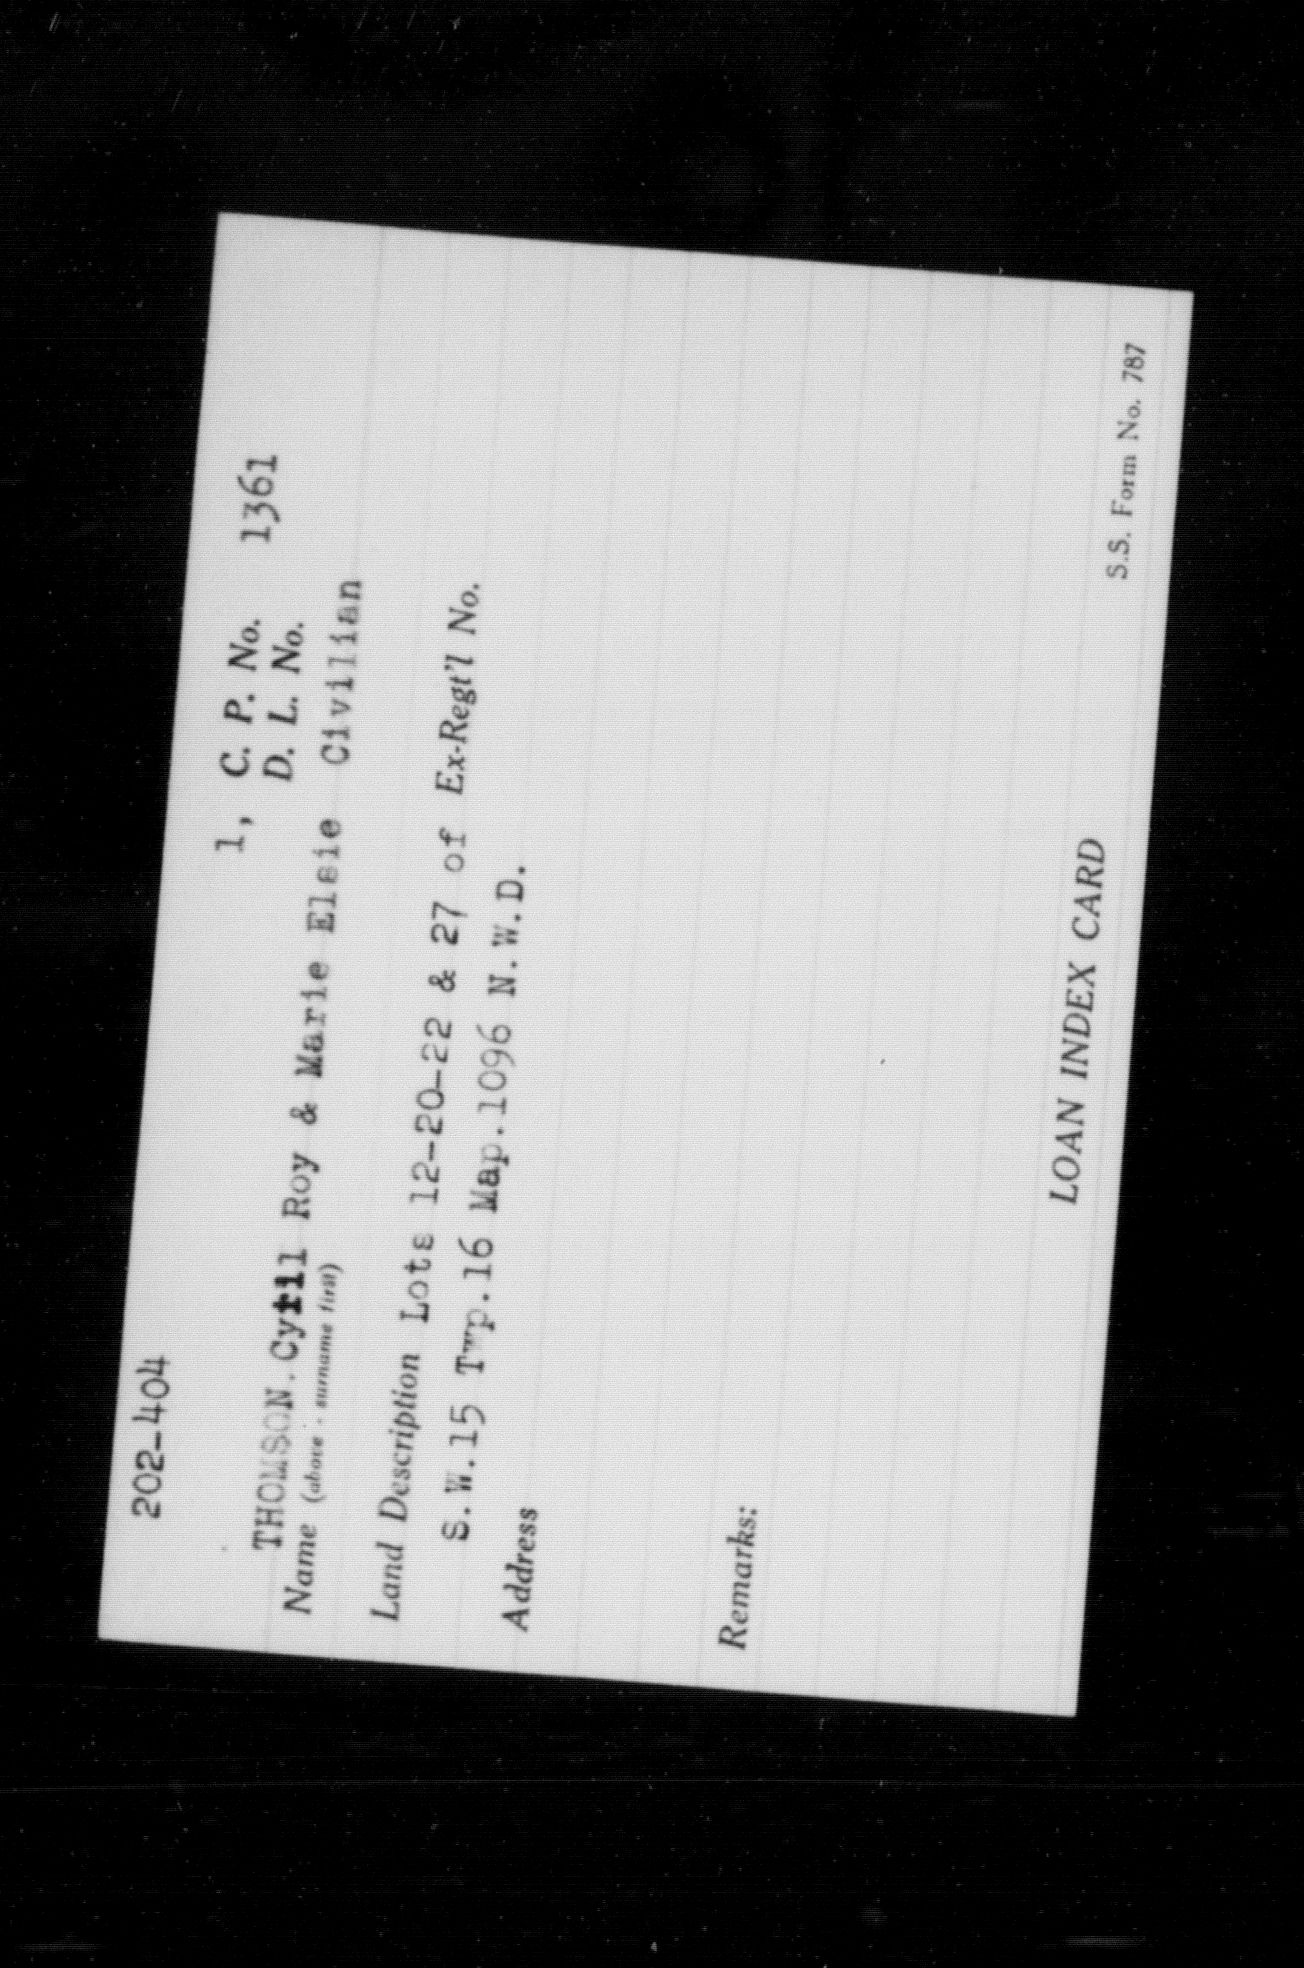 202-404
1, C. P. No. 1361
D. L. No.
THOMSON. Cyril Roy & Marie Elsie Civilian
Name (above - surname first)
Land Description Lots 12-20-22 & 27 of Ex-Regt'l No.
S.W.15 Twp.16 Map.1096 N.W.D.
Address
Remarks:
LOAN INDEX CARD
S.S. Form No. 787